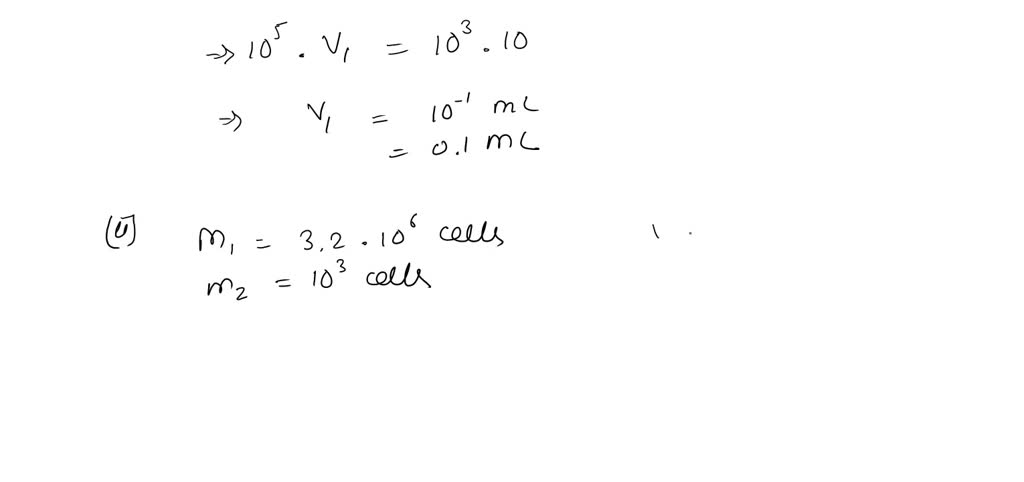 ⇒ 10⁵ . V₁ = 10³ . 10
⇒ V₁ = 10⁻¹ mL
= 0.1 mL
(ii) m₁ = 3.2 . 10⁶ cells
m₂ = 10³ cells